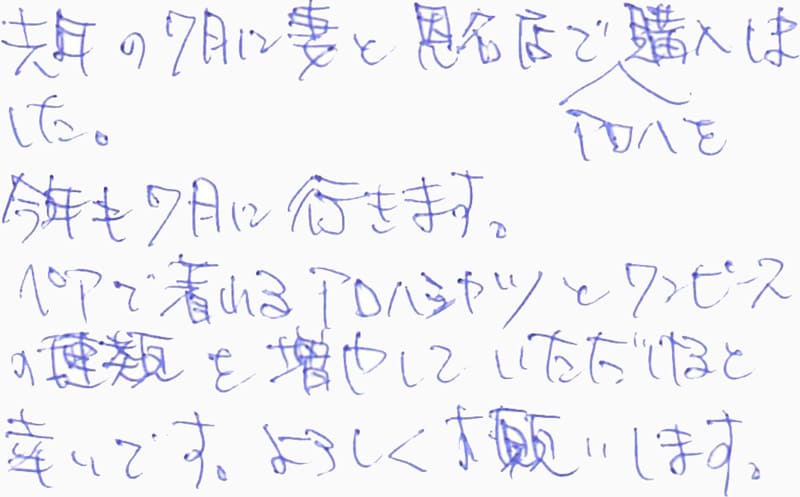 去年の7月に妻と恩名店でアロハを購入しま
した。
今年も7月に行きます。
ペアで着れるアロハシャツとワンピース
の種類を増やしていただけると
幸いです。よろしくお願いします。